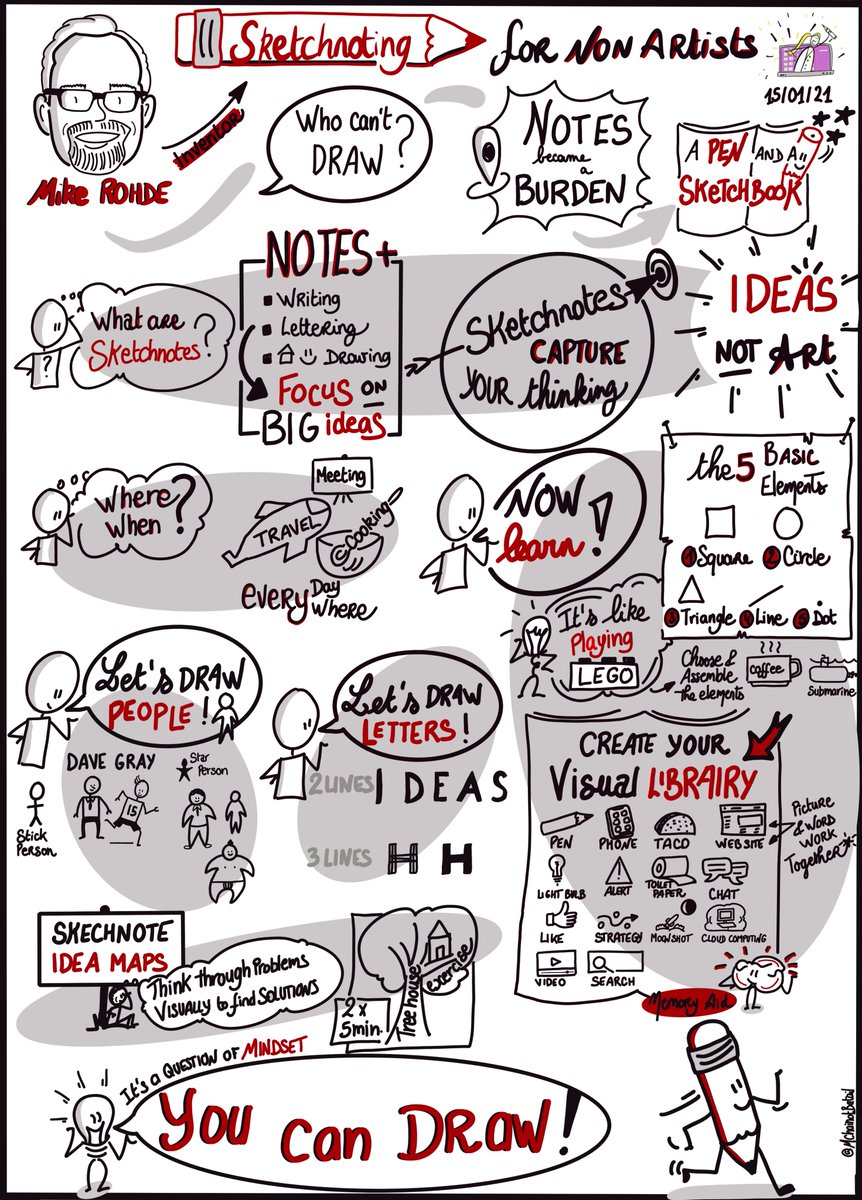 Sketchnoting
for Non Artists
15/01/21
Mike ROHDE
Inventor
Who can't
DRAW?
NOTES
became
a
BURDEN
A PEN AND A
SKETCHBOOK
What are
Sketchnotes?
?
NOTES+
Writing
Lettering
Drawing
FOCUS ON
BIG ideas
Sketchnotes
CAPTURE
YOUR thinking
IDEAS
NOT Art
Where
When?
Meeting
TRAVEL
Cooking
EVERY Day
Where
NOW
learn!
the 5 BASIC
Elements
1 Square 2 Circle
3 Triangle 4 Line 5 Dot
It's like
Playing
LEGO
Choose &
Assemble
the elements
Coffee
Submarine
Let's DRAW
PEOPLE!
DAVE GRAY
Star
Person
15
Stick
Person
Let's DRAW
LETTERS!
2 LINES
IDEAS
3 LINES
H H
CREATE YOUR
Visual LIBRAIRY
PEN PHONE TACO WEBSITE
LIGHT BULB ALERT TOILET PAPER CHAT
LIKE STRATEGY MOONSHOT CLOUD COMPUTING
VIDEO SEARCH
Picture
& WORD
WORK
Together
Memory Aid
SKECHNOTE
IDEA MAPS
Think through Problems
VISUALLY to find SOLUTIONS
2x
5min.
Tree house
exercise
It's a QUESTION OF MINDSET
You can DRAW!